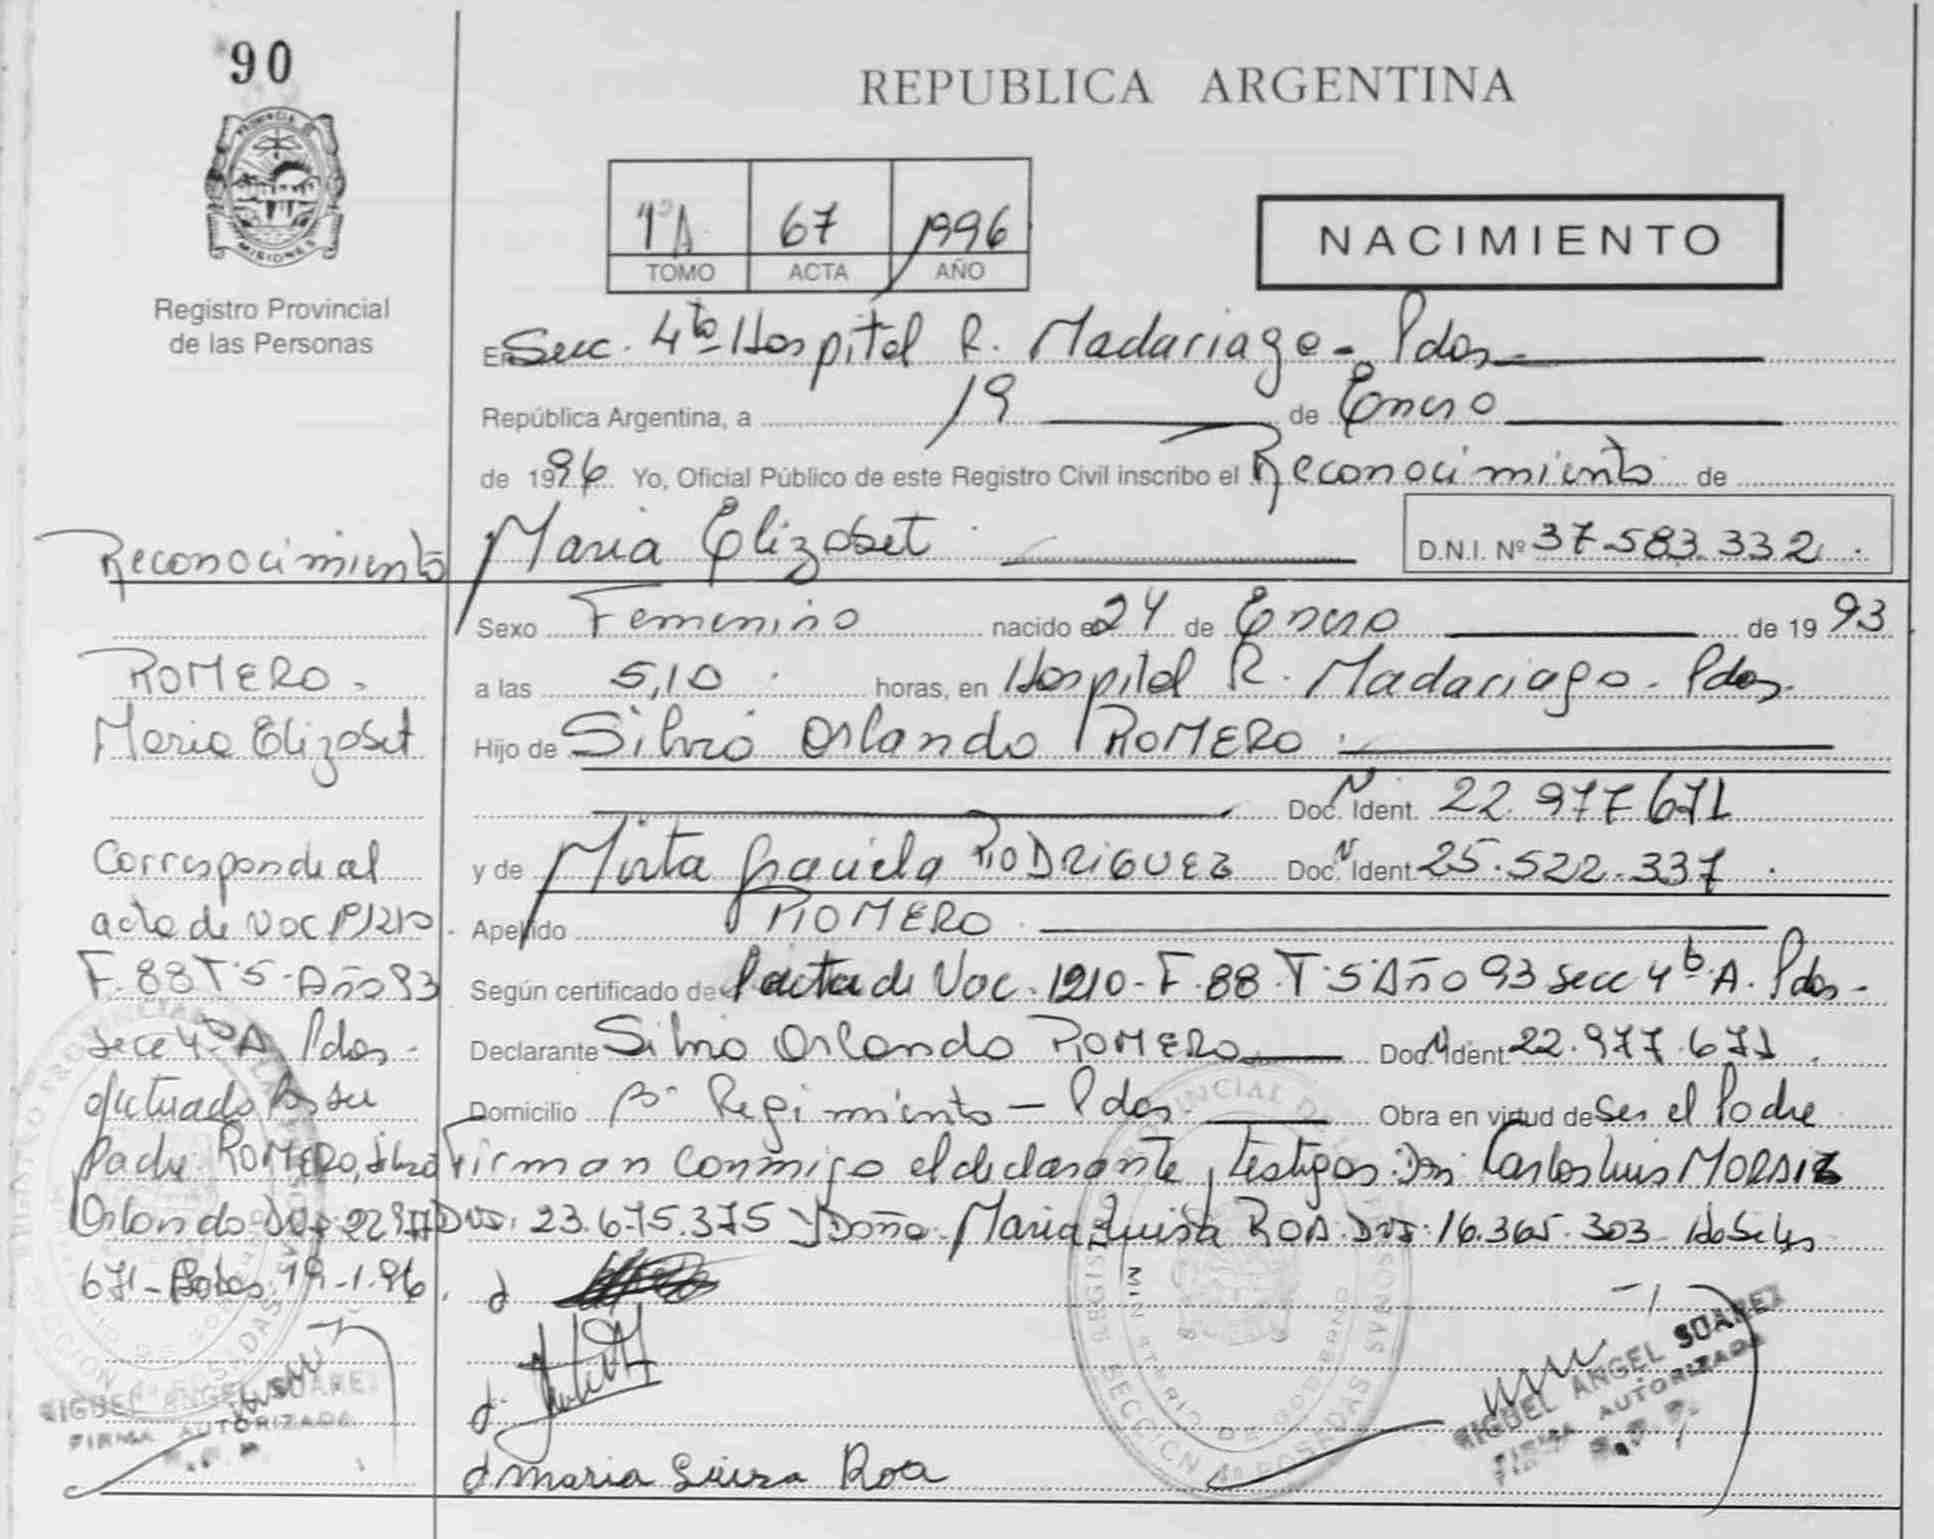 90
REPUBLICA ARGENTINA
PROVINCIA DE MISIONES
Registro Provincial
de las Personas
1ºA 67 1996
TOMO ACTA AÑO
NACIMIENTO
En Secc. 4ta Hospital R. Madariaga - Pdas -
República Argentina, a 19 de Enero
de 1996 Yo, Oficial Público de este Registro Civil inscribo el Reconocimiento de
Maria Elizabet D.N.I. Nº 37.583.332
Sexo Femenino nacido el 24 de Enero de 1993
a las 5,10 horas, en Hospital R. Madariaga - Pdas.
Hijo de Silvio Orlando ROMERO
Doc. Ident. 22.977.671
y de Mirta Graciela RODRIGUEZ Doc. Ident. 25.522.337
Apellido ROMERO
Según certificado de acta de Nac. 1210 - F. 88 - T. 5 Año 93 Secc 4ta A. Pdas -
Declarante Silvio Orlando ROMERO Doc. Ident. 22.977.671
Domicilio Bº Regimiento - Pdas. Obra en virtud de Ser el Padre
Firman conmigo el declarante, testigos: Don Carlos Luis
DNI: 23.675.375 y Doña Maria Luisa ROA DNI: 16.365.303
Maria Luiza Roa
Reconocimiento
ROMERO -
Maria Elizabet
Corresponde al
acta de Nac Nº 1210
F. 88 T. 5 - Año 93
Secc 4ta A Pdas -
efectuado por su
Padre ROMERO, Silvio
Orlando DNI 22.977
671 - Pdas. 19-1-96
MIGUEL ANGEL SUAREZ
FIRMA AUTORIZADA
REGISTRO PROVINCIAL DE LAS PERSONAS
MINISTERIO DE GOBIERNO
SECCION 4ª POSADAS
MIGUEL ANGEL SUAREZ
FIRMA AUTORIZADA